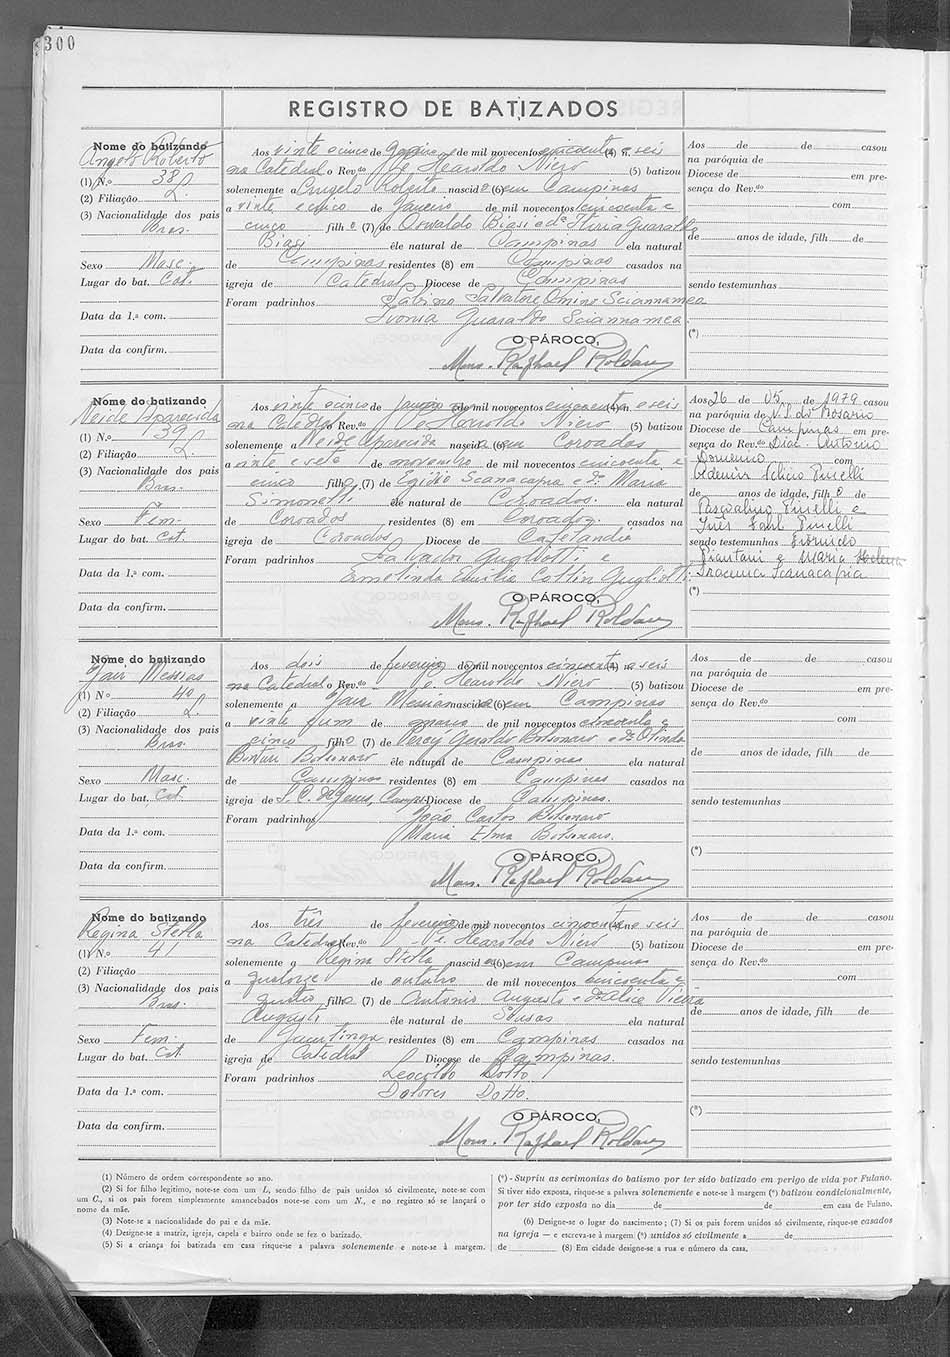 300
REGISTRO DE BATIZADOS
Nome do batizando
Angelo Roberto
(1) N.o 38
(2) Filiação L.
(3) Nacionalidade dos pais
Bras.
Sexo Masc.
Lugar do bat. Cat.
Data da 1.a com.
Data da confirm.
Aos vinte e cinco de janeiro de mil novecentos cincoenta (4) e seis
na Catedral o Rev.do Pe Haroldo Niero (5) batizou
solenemente a Angelo Roberto nascido (6) em Campinas
a vinte e cinco de Janeiro de mil novecentos cincoenta e
cinco filho (7) de Oswaldo Biasi e da Guaraldo
Biasi êle natural de Campinas ela natural
de Campinas residentes (8) em Campinas casados na
igreja de Catedral Diocese de Campinas
Foram padrinhos Salvatore Sciannamea
Ivonia Guaraldo Sciannamea
O PÁROCO,
Mons. Raphael Roldan
Aos de de casou
na paróquia de
Diocese de em pre-
sença do Rev.do
com
de anos de idade, filh de
sendo testemunhas
(*)
Nome do batizando
Neide Aparecida
(1) N.o 39
(2) Filiação L.
(3) Nacionalidade dos pais
Bras.
Sexo Fem.
Lugar do bat. Cat.
Data da 1.a com.
Data da confirm.
Aos vinte e cinco de janeiro de mil novecentos cincoenta (4) e seis
na Catedral o Rev.do Pe Haroldo Niero (5) batizou
solenemente a Neide Aparecida nascida (6) em Coroados
a vinte e sete de novembro de mil novecentos cincoenta e
cinco filha (7) de Egidio Scanacapra e D. Maria
Simonetti êle natural de Coroados. ela natural
de Coroados residentes (8) em Coroados. casados na
igreja de Coroados Diocese de Cafelandia
Foram padrinhos Salvador Gugliotti e
Ermelinda Emilia Cottin Gugliotti
O PÁROCO,
Mons. Raphael Roldan
Aos 26 de 05 de 1979 casou
na paróquia de N. S. do Rosario
Diocese de Campinas em pre-
sença do Rev.do Diac. Antonio
Domenico com
Ademir Felicio Pinelli
de anos de idade, filho de
Pascoalino Pinelli e
Inês Pinelli
sendo testemunhas
Piantani e Maria Helena
Iracema Scanacapra
(*)
Nome do batizando
Jair Messias
(1) N.o 40
(2) Filiação L.
(3) Nacionalidade dos pais
Bras.
Sexo Masc.
Lugar do bat. Cat.
Data da 1.a com.
Data da confirm.
Aos dois de fevereiro de mil novecentos cincoenta (4) e seis
na Catedral o Rev.do Pe. Haroldo Niero (5) batizou
solenemente a Jair Messias nascido (6) em Campinas
a vinte e um de março de mil novecentos cincoenta e
cinco filho (7) de Percy Geraldo Bolsonaro e da Olinda
Bonturi Bolsonaro êle natural de Campinas ela natural
de Campinas residentes (8) em Campinas casados na
igreja de S. C. de Jesus, Camps. Diocese de Campinas.
Foram padrinhos João Carlos Bolsonaro
Maria Elma Bolsonaro.
O PÁROCO,
Mons. Raphael Roldan
Aos de de casou
na paróquia de
Diocese de em pre-
sença do Rev.do
com
de anos de idade, filh de
sendo testemunhas
(*)
Nome do batizando
Regina Stella
(1) N.o 41
(2) Filiação
(3) Nacionalidade dos pais
Bras.
Sexo Fem.
Lugar do bat. Cat.
Data da 1.a com.
Data da confirm.
Aos três de fevereiro de mil novecentos cincoenta (4) e seis
na Catedral o Rev.do Pe. Haroldo Niero (5) batizou
solenemente a Regina Stella nascida (6) em Campinas
a quatorze de outubro de mil novecentos cincoenta e
quatro filha (7) de Antonio Augusti e Da Alice Vieira
Augusti êle natural de Sousas ela natural
de residentes (8) em Campinas casados na
igreja de Catedral Diocese de Campinas.
Foram padrinhos Leopoldo Dotto
Dolores Dotto.
O PÁROCO,
Mons. Raphael Roldan
Aos de de casou
na paróquia de
Diocese de em pre-
sença do Rev.do
com
de anos de idade, filh de
sendo testemunhas
(*)
(1) Número de ordem correspondente ao ano.
(2) Si for filho legítimo, note-se com um L, sendo filho de pais unidos só civilmente, note-se com
um C., si os pais forem simplesmente amancebados note-se com um N., e no registro só se lançará o
nome da mãe.
(3) Note-se a nacionalidade do pai e da mãe.
(4) Designe-se a matriz, igreja, capela e bairro onde se fez o batizado.
(5) Si a criança foi batizada em casa risque-se a palavra solenemente e note-se à margem.
(*) - Supriu as cerimonias do batismo por ter sido batizado em perigo de vida por Fulano.
Si tiver sido exposta, risque-se a palavra solenemente e note-se à margem (*) batizou condicionalmente,
por ter sido exposta no dia de de em casa de Fulano.
(6) Designe-se o lugar do nascimento; (7) Si os pais forem unidos só civilmente, risque-se casados
na igreja — e escreva-se à margem (*) unidos só civilmente a de
de (8) Em cidade designe-se a rua e número da casa.